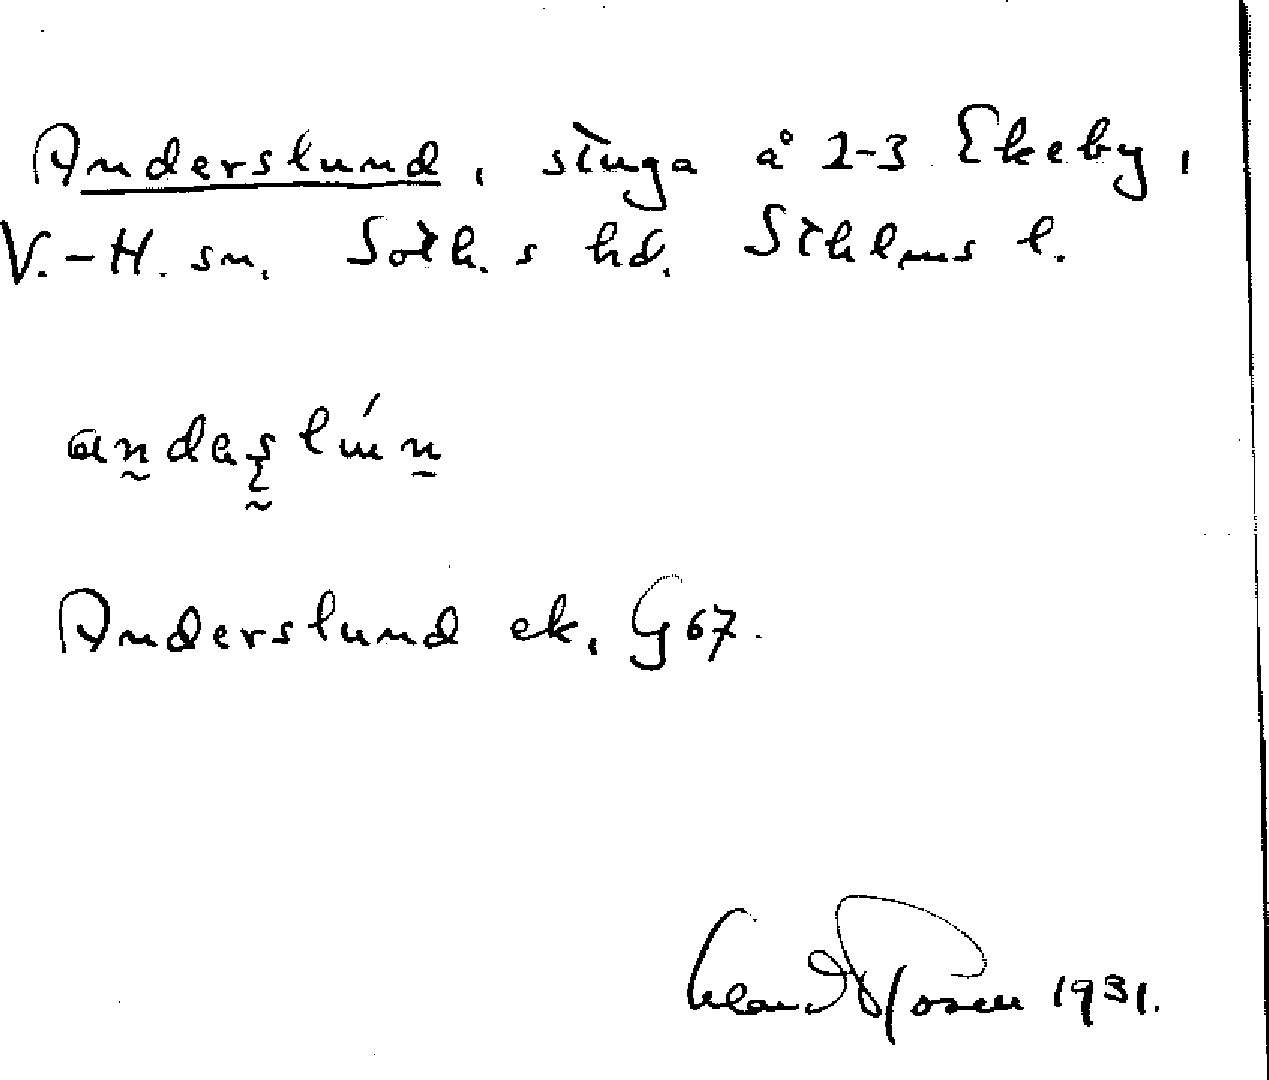 Anderslund, stuga å 2-3 Ekeby,
V.-H. sn. Soth. s hd. Sthlms l.
andaʂlún
Anderslund ek. G 67.
1931.